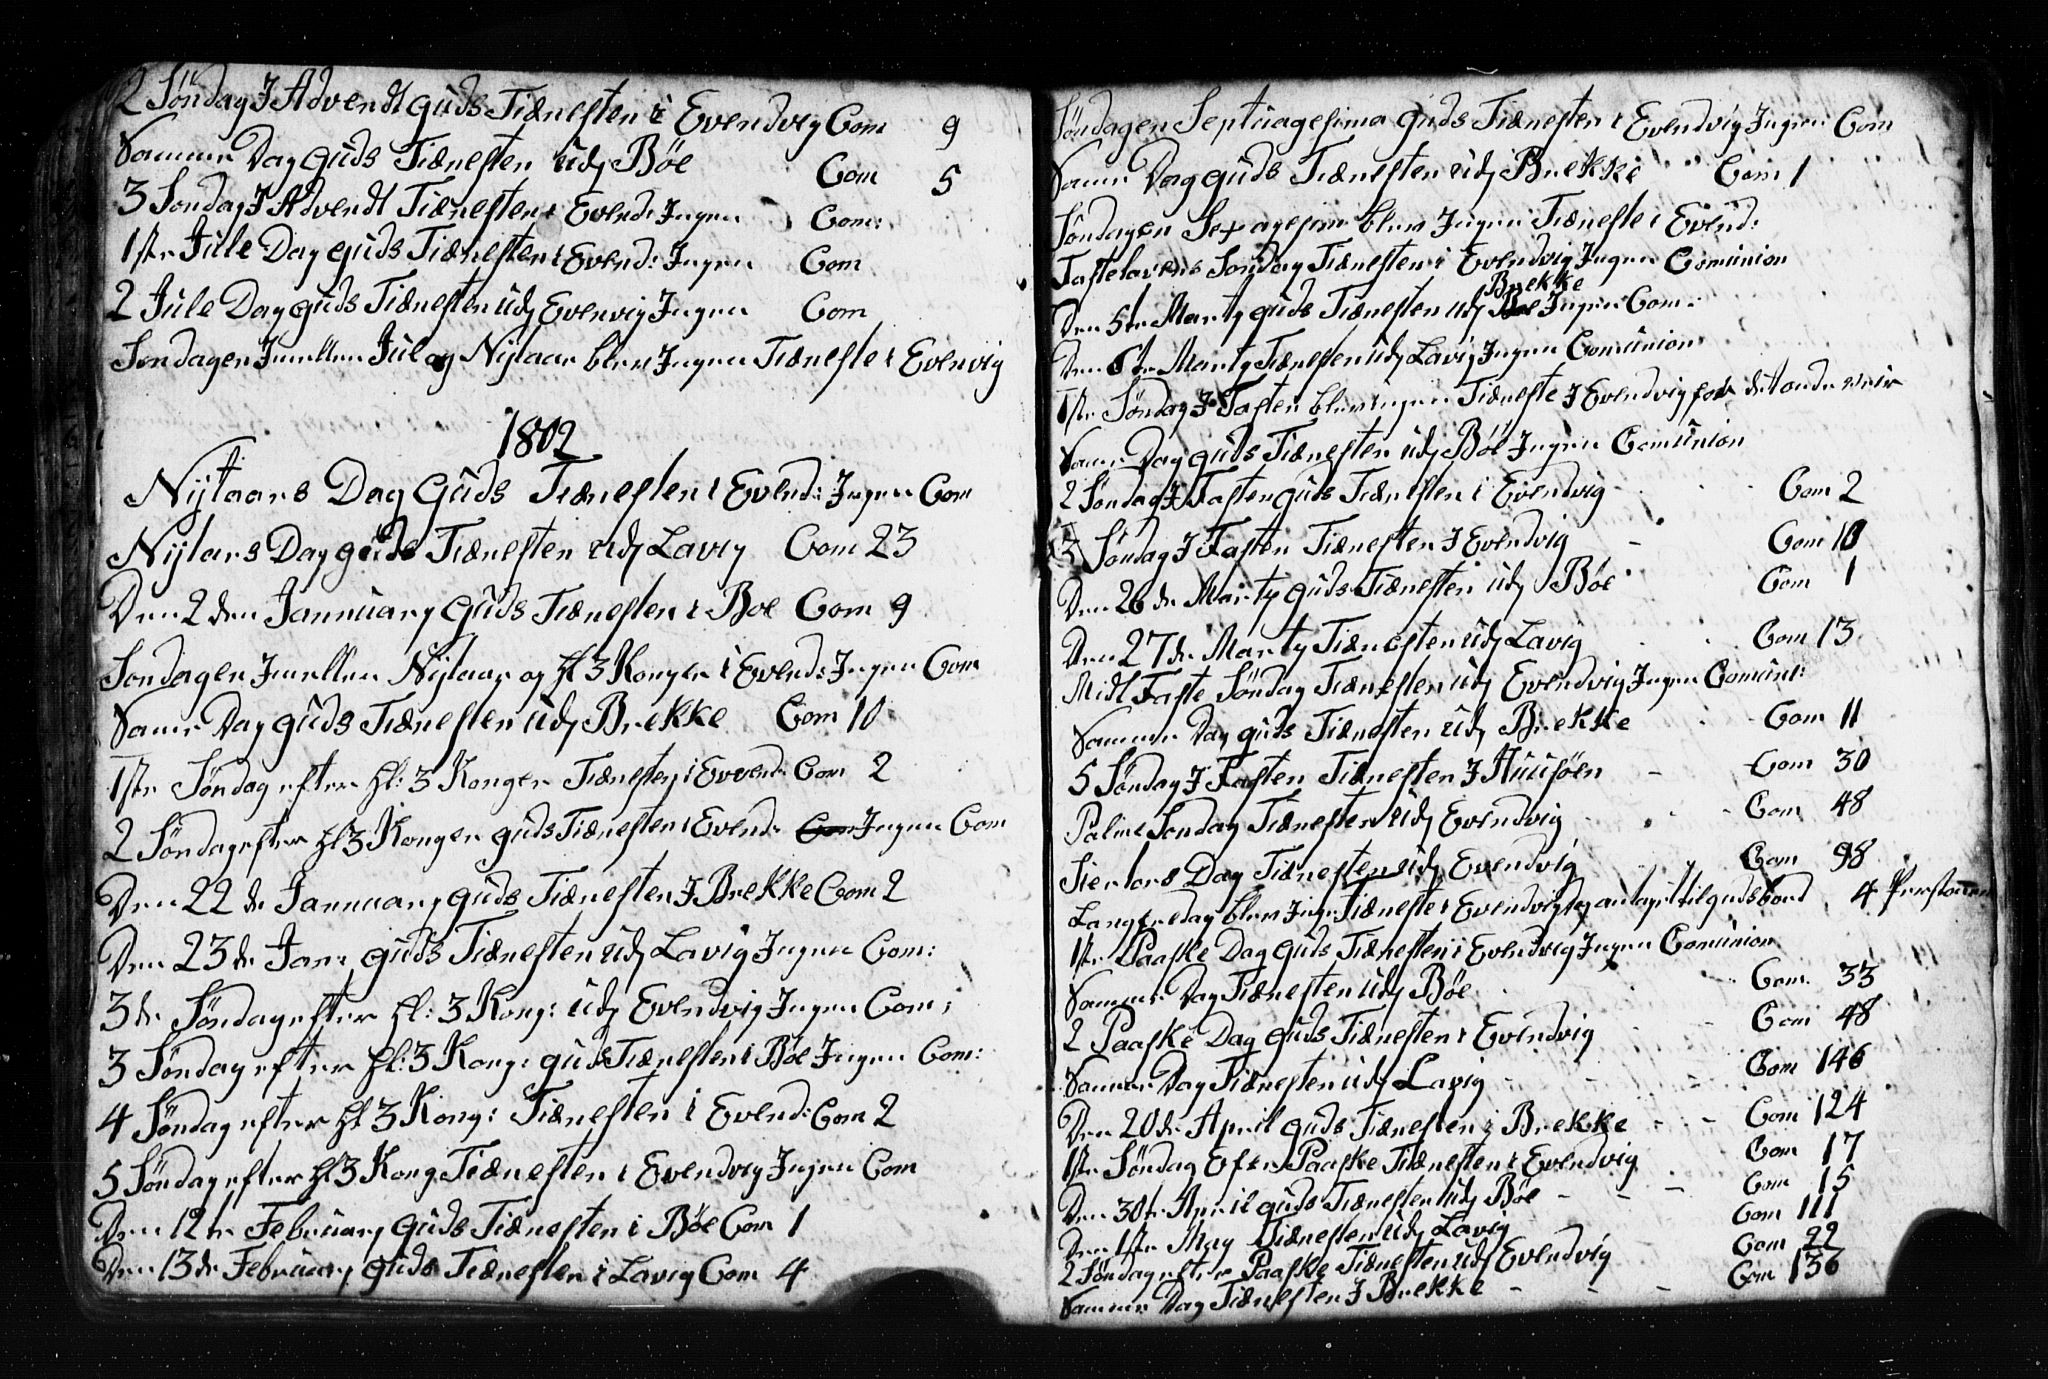 2 Søndag I Advendt Guds Tiænesten i Evendvig Com 9
Samme Dag Guds Tiænesten udj Böe Com 5
3 Søndag I Advendt Tiænesten i Evend: Ingen Com:
1ste Jule Dag Guds Tiænesten i Evend: Ingen Com
2 Jule Dag Guds Tiænesten udj Evenvig Ingen Com
Søndagen Imellem Jul og Nijtaar blev Ingen Tiæneste i Evenvig
1802
Nijtaars Dag Guds Tiænesten i Evend: Ingen Com
Nijtars Dag Guds Tiænesten udj Lavig Com 23
Den 2den Jannuary Guds Tiænesten i Boe Com 9
Sondagen Imellem Nijtaar og hl 3 Konger i Evend: Ingen Com
Same Dag Guds Tiænesten udj Brekke Com 10
1ste Søndag efter hl: 3 Konger Tiænesten i Evend: Com 2
2 Søndag efter hl 3 Konger Guds Tiænesten i Evend: Com Ingen Com
Den 22de Jannuary Guds Tiænesten I Brekke Com 2
Den 23de Jan: Guds Tiænesten udj Lavig Ingen Com:
3de Søndag efter hl: 3 Kong: udj Evendvig Ingen Com:
3 Søndag efter hl: 3 Kong: Guds Tiænesten i Böe Ingen Com:
4 Søndag efter hl 3 Kong: Tiænesten i Evend: Com 2
5 Søndag efter hl 3 Kong Tiænesten i Evendvig Ingen Com
Den 12te February Guds Tiænesten i Böe Com 1
Den 13de February Guds Tiænesten i Lavig Com 4
Søndagen Septuagesima Guds Tiænesten i Evendvig Ingen Com
Same Dag Guds Tiænesten udj Brekke Com 1
Søndagen Sexagesima blev Ingen Tiæneste i Evend:
Fastelavens Sondag Tiænesten i Evendvig Ingen Comunion
Brekke
Den 5te Marty Guds Tiænesten udj Boe Ingen Com:
Den 6te Marty Tiænesten udj Lavig Ingen Comunion
1ste Søndag I Fasten blev ingen Tiæneste I Evendvig for det onde veir
Same Dag Guds Tiænesten udj Böe Ingen Comunion
2 Søndag I Fasten Guds Tiænesten i Evendvig Com 2
3 Søndag I Fasten Tiænesten I Evendvig Com 10
Den 26de Marty Guds Tiænesten udj Böe Com 1
Den 27de Marty Tiænesten udj Lavig Com 13
Midt Faste Søndag Tiænesten udj Evendvig Ingen Comuni:
Samme Dag Guds Tiænesten udj Brekke Com 11
5 Søndag I Fasten Tiænesten I Huusøen Com 30
Palme Sondag Tiænesten udj Evendvig Com 48
Siertors Dag Tiænesten udj Evendvig Com 98
Langfredag blev Ingen Tiæneste i Evendvig og antaget til gudsbord 4 Personer
1ste Paaske Dag Guds Tiænesten i Evendvig Ingen Comunion
Samme Dag Tiænesten udj Böe Com 33
2 Paaske Dag Guds Tiænesten i Evendvig Com 48
Samme Dag Tiænesten udj Lavig Com 146
Den 20de April Guds Tiænesten i Brekke Com 124
1ste Søndag Efter Paaske Tiænesten i Evendvig Com 17
Den 30te April Guds Tiænesten udj Böe Com 15
Den 1ste May Tiænesten udj Lavig Com 111
2 Søndag efter Paaske Tiænesten udj Evendvig Com 22
Samme Dag Tiænesten I Brekke Com 136